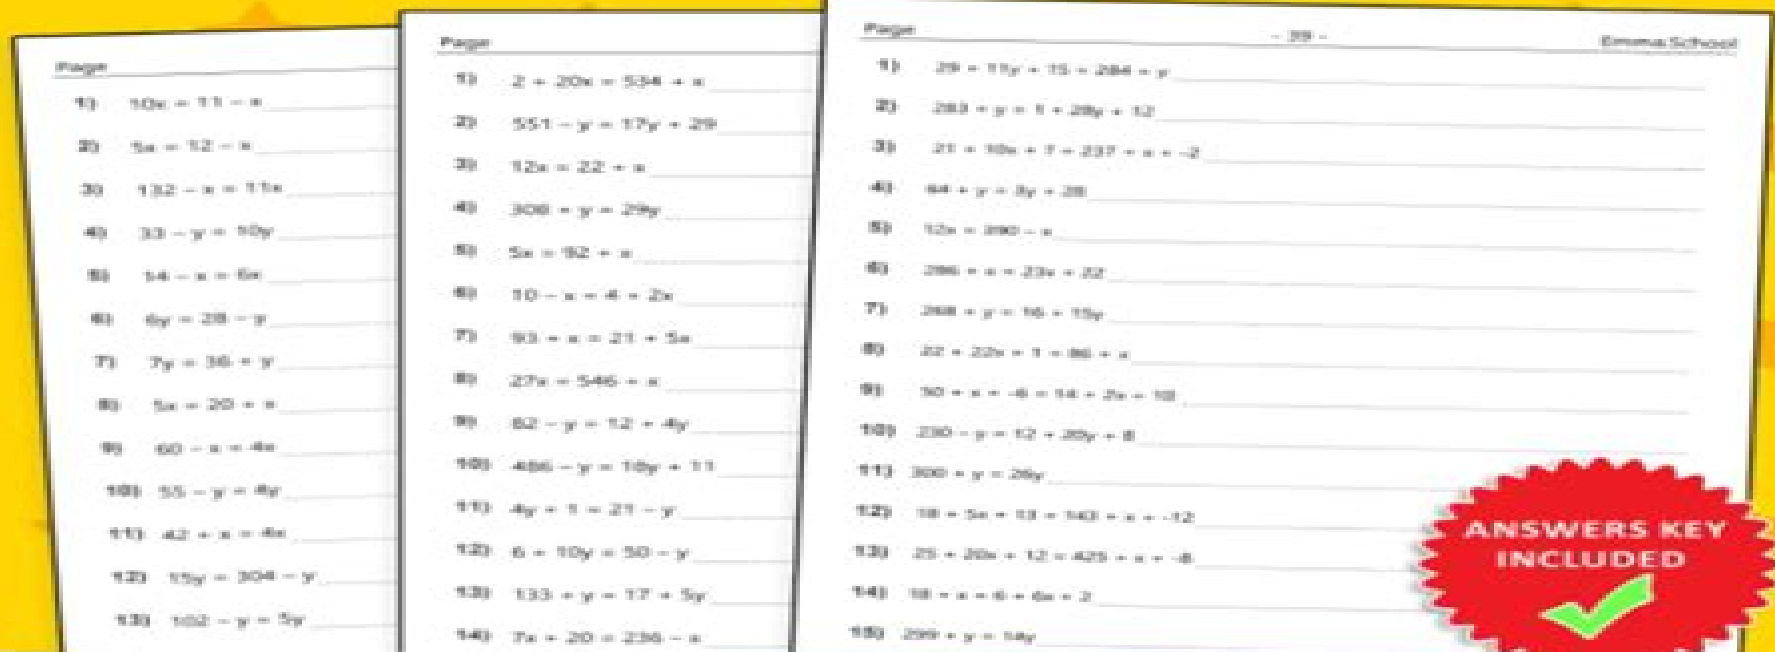 Page
1) 10x = 11 − x
2) 5x = 12 − x
3) 132 − x = 11x
4) 33 − y = 10y
5) 14 − x = 6x
6) 6y = 28 − y
7) 7y = 36 + y
8) 5x = 20 + x
9) 60 − x = 4x
10) 55 − y = 4y
11) 42 + x = 4x
12) 15y = 304 − y
13) 102 − y = 5y
Page
1) 2 + 20x = 534 + x
2) 551 − y = 17y + 29
3) 12x = 22 + x
4) 308 + y = 29y
5) 5x = 92 + x
6) 10 − x = 4 + 2x
7) 93 + x = 21 + 5x
8) 27x = 546 + x
9) 62 − y = 12 + 4y
10) 486 − y = 18y + 11
11) 4y + 1 = 21 − y
12) 6 + 10y = 50 − y
13) 133 + y = 17 + 5y
14) 7x + 20 = 236 − x
Page - 39 - Emma.School
1) 29 + 11y + 15 = 284 + y
2) 283 + y = 1 + 28y + 12
3) 21 + 10x + 7 = 237 + x + -2
4) 64 + y = 3y + 28
5) 12x = 390 − x
6) 286 + x = 23x + 22
7) 268 + y = 16 + 15y
8) 22 + 22x + 1 = 86 + x
9) 50 + x + -6 = 14 + 2x + 10
10) 230 − y = 12 + 20y + 8
11) 300 + y = 26y
12) 18 + 5x + 13 = 143 + x + -12
13) 25 + 20x + 12 = 425 + x + -8
14) 18 + x = 6 + 6x + 2
15) 299 + y = 14y
ANSWERS KEY
INCLUDED